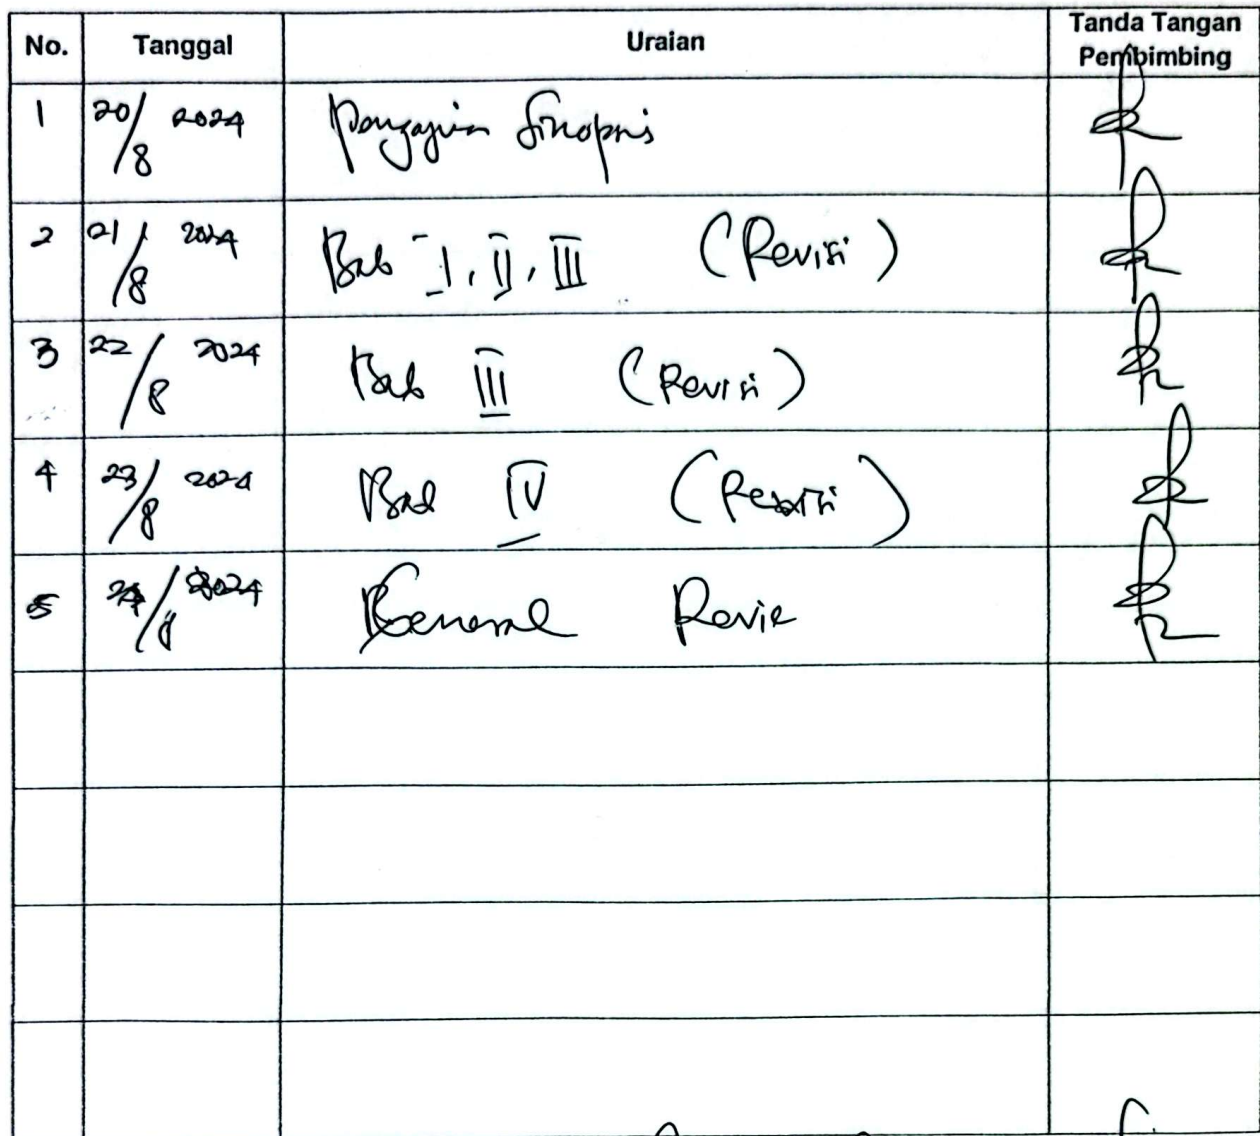 No. Tanggal Uraian Tanda Tangan Pembimbing
1 20/8 2024 Sinopsis
2 21/8 2024 Bab I, II, III (Revisi)
3 22/8 2024 Bab III (Revisi)
4 23/8 2024 Bab IV (Revisi)
5 24/8 2024 General Revie